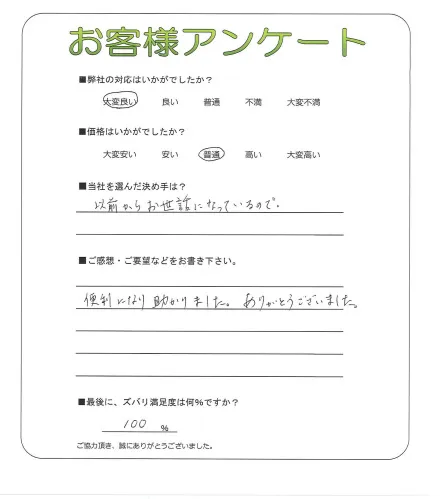 お客様アンケート
■弊社の対応はいかがでしたか？
大変良い 良い 普通 不満 大変不満
■価格はいかがでしたか？
大変安い 安い 普通 高い 大変高い
■当社を選んだ決め手は？
以前からお世話になっているので。
■ご感想・ご要望などをお書き下さい。
便利になり助かりました。ありがとうございました。
■最後に、ズバリ満足度は何％ですか？
100 ％
ご協力頂き、誠にありがとうございました。